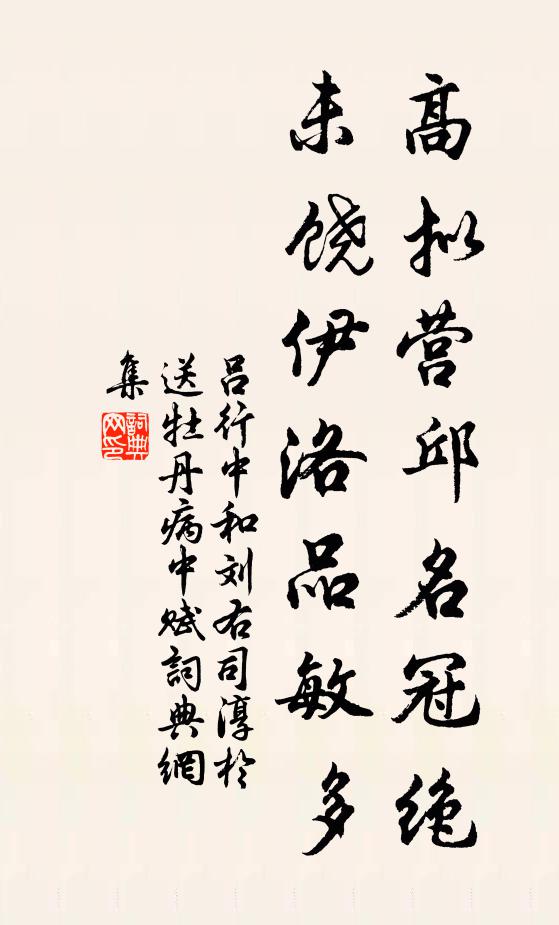 高拟营邱名冠绝
未饶伊洛品敏多
吕行中和刘右司淳於
送牡丹病中赋詞典網
集
詞典
网印